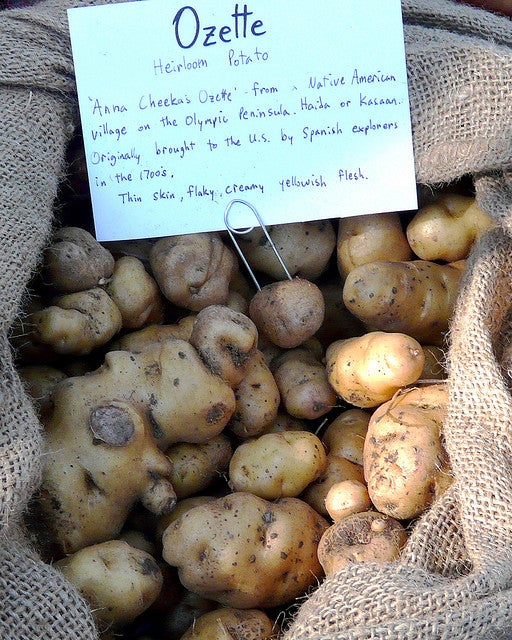 Ozette
Heirloom Potato
"Anna Cheeka's Ozette" - from a Native American
village on the Olympic Peninsula. Haida or Kasaan.
Originally brought to the U.S. by Spanish explorers
in the 1700's.
Thin skin, flaky, creamy yellowish flesh.